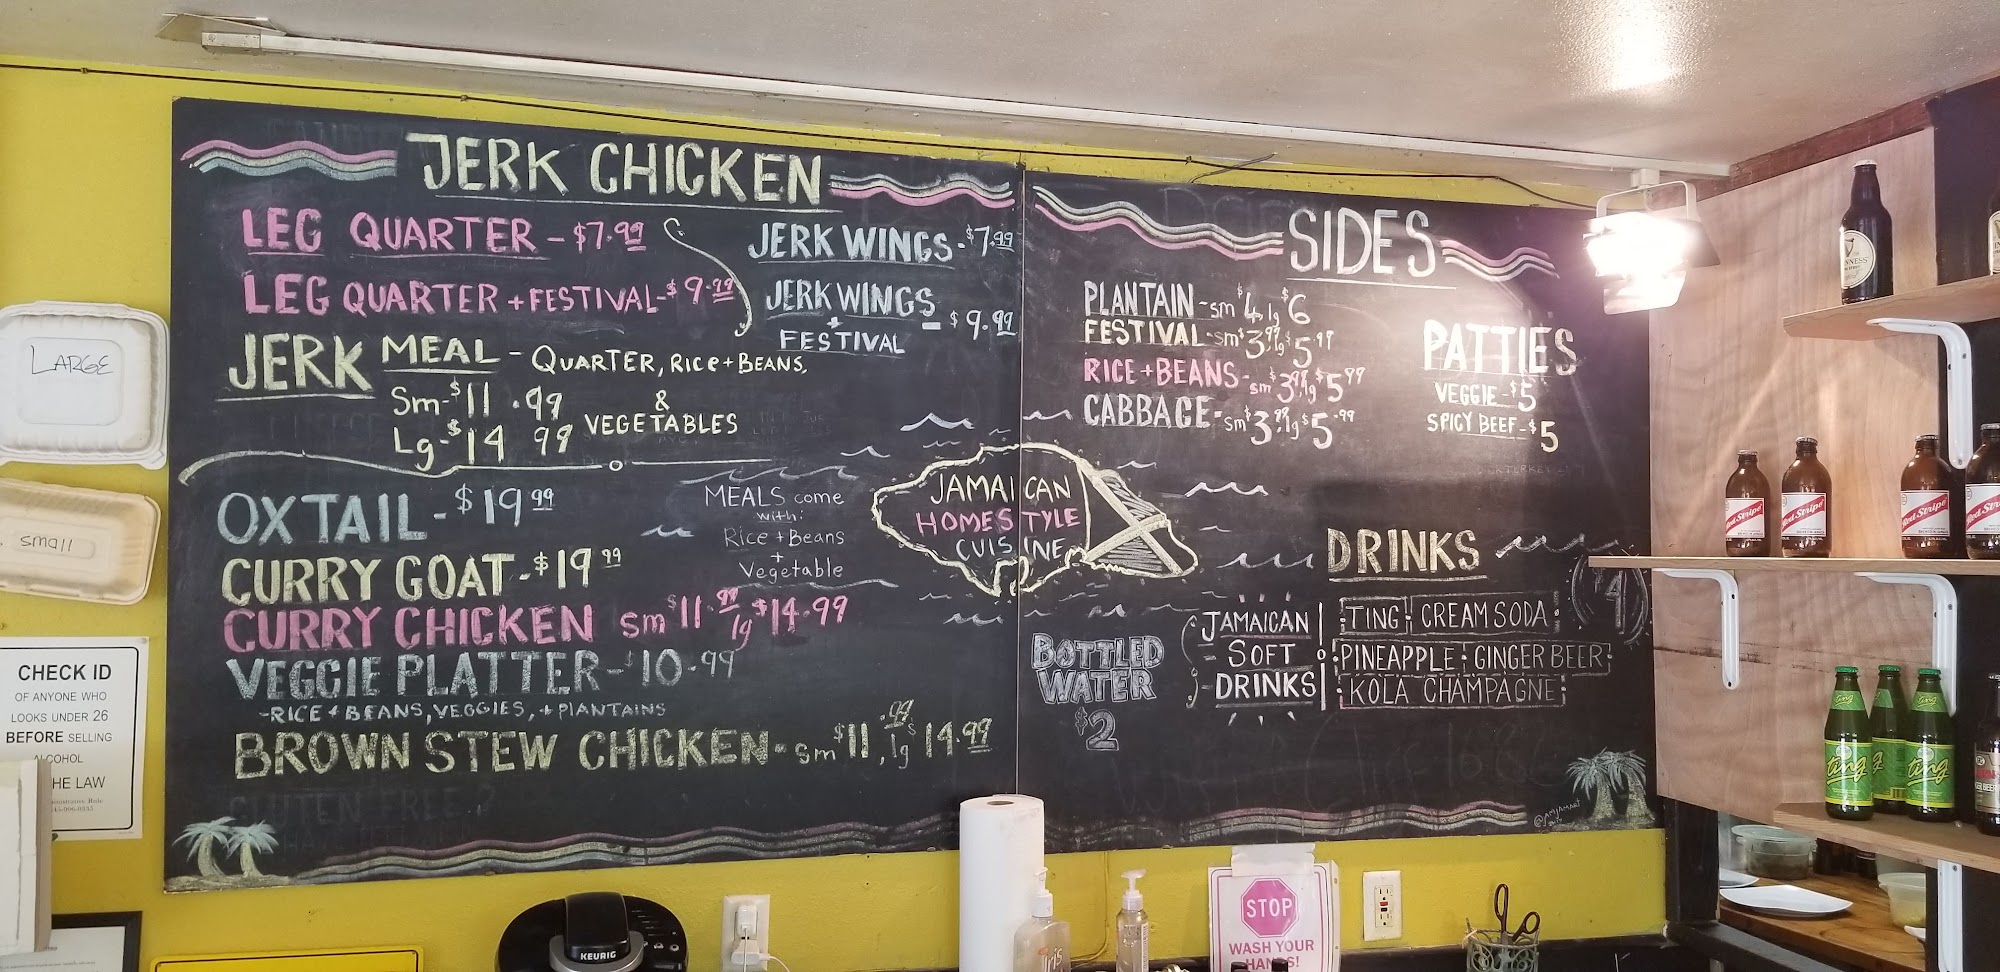 JERK CHICKEN
LEG QUARTER - $7.99
LEG QUARTER + FESTIVAL - $9.99
JERK WINGS - $7.99
JERK WINGS
+
FESTIVAL
- $9.99
JERK MEAL - QUARTER, RICE + BEANS,
&
VEGETABLES
Sm - $11.99
Lg - $14 99
OXTAIL - $19 99
CURRY GOAT - $19 99
CURRY CHICKEN sm $11.99 lg $14.99
VEGGIE PLATTER - $10.99
- RICE + BEANS, VEGGIES, + PLANTAINS
BROWN STEW CHICKEN - sm $11.99, lg $14.99
MEALS come
with:
Rice + Beans
+
Vegetable
JAMAICAN
HOMESTYLE
CUISINE
SIDES
PLANTAIN - sm $4, lg $6
FESTIVAL - sm $3.99, lg $5.99
RICE + BEANS - sm $3.99, lg $5.99
CABBAGE - sm $3.99, lg $5.99
PATTIES
VEGGIE - $5
SPICY BEEF - $5
DRINKS
$4
BOTTLED
WATER
$2
JAMAICAN
- SOFT
- DRINKS
TING CREAM SODA
PINEAPPLE GINGER BEER
KOLA CHAMPAGNE
GLUTEN FREE?
LARGE
small
CHECK ID
OF ANYONE WHO
LOOKS UNDER 26
BEFORE SELLING
ALCOHOL
HE LAW
KEURIG
STOP
WASH YOUR
HANDS!
Red Stripe
Red Stripe
Red Stripe
Red Stripe
Ting
Ting